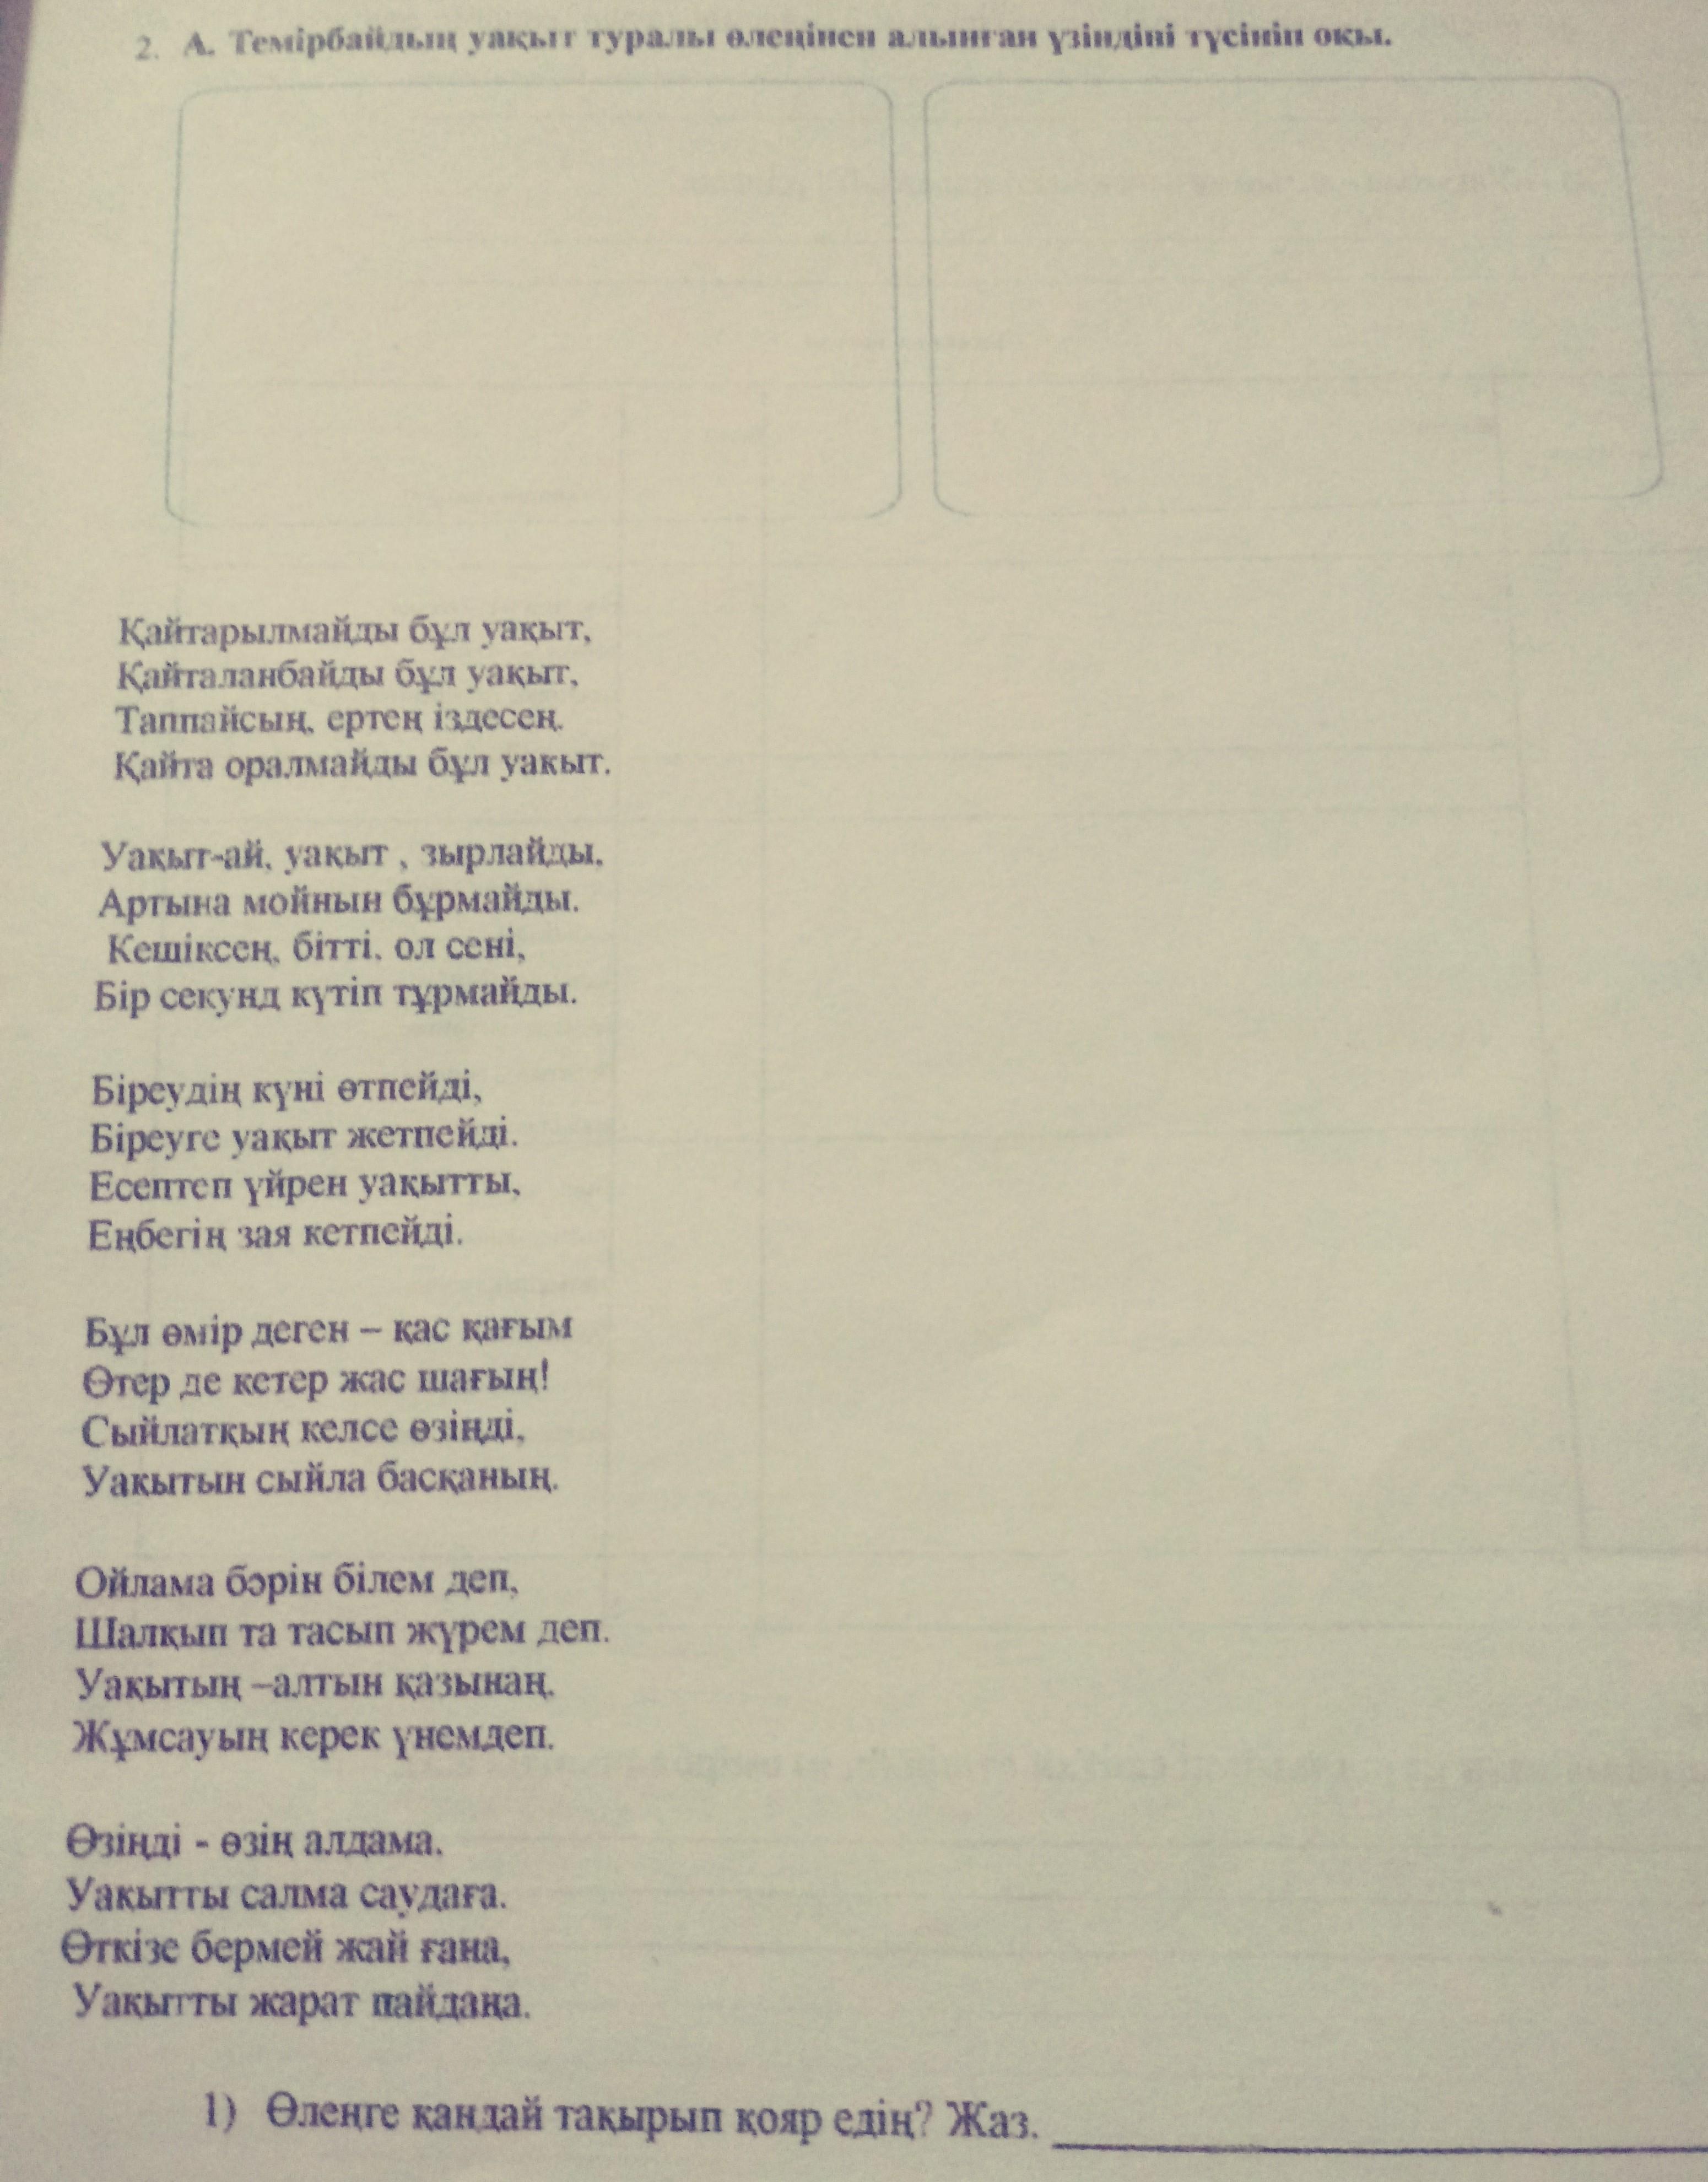 2. А. Темірбайдың уақыт туралы өлеңінен алынған үзіндіні түсініп оқы.
Қайтарылмайды бұл уақыт,
Қайталанбайды бұл уақыт,
Таппайсың, ертең іздесең.
Қайта оралмайды бұл уақыт.
Уақыт-ай, уақыт , зырлайды,
Артына мойнын бұрмайды.
Кешіксең, бітті, ол сені,
Бір секунд күтіп тұрмайды.
Біреудің күні өтпейді,
Біреуге уақыт жетпейді.
Есептеп үйрен уақытты,
Еңбегің зая кетпейді.
Бұл өмір деген – қас қағым
Өтер де кетер жас шағың!
Сыйлатқың келсе өзіңді,
Уақытын сыйла басқаның.
Ойлама бәрін білем деп,
Шалқып та тасып жүрем деп.
Уақытың –алтын қазынаң.
Жұмсауың керек үнемдеп.
Өзіңді - өзің алдама.
Уақытты салма саудаға.
Өткізе бермей жай ғана,
Уақытты жарат пайдаңа.
1) Өлеңге қандай тақырып қояр едің? Жаз.